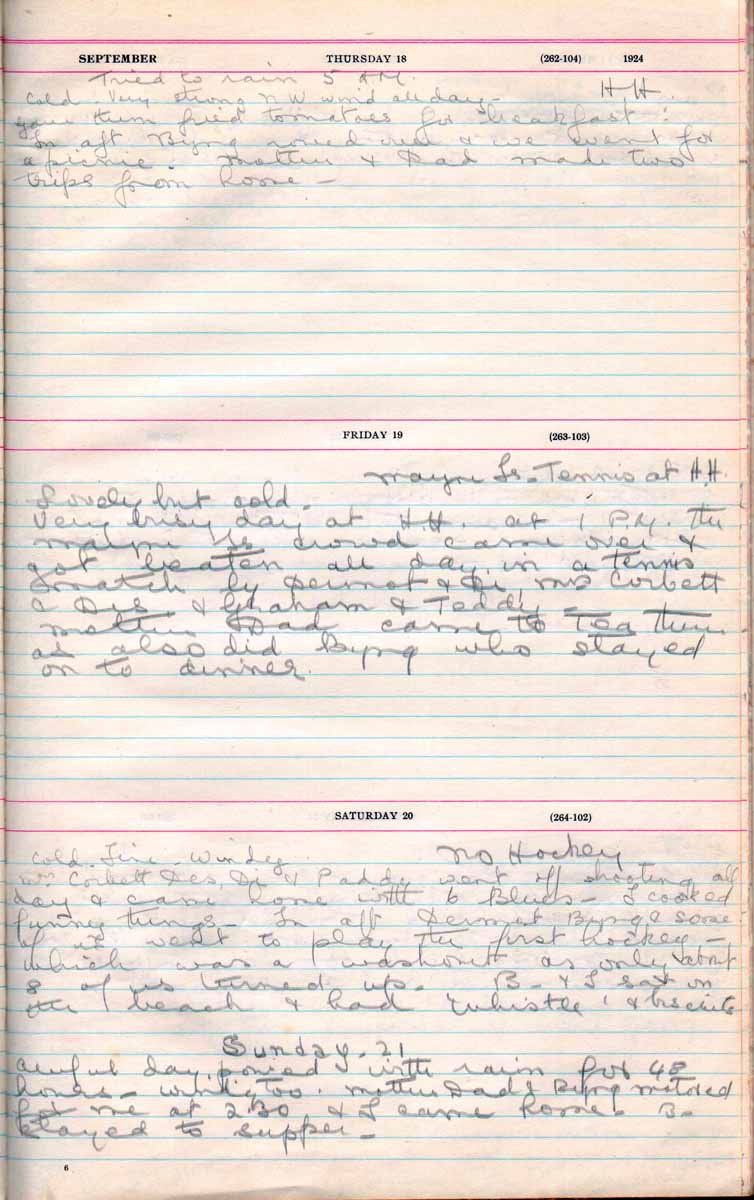 SEPTEMBER THURSDAY 18 (262-104) 1924
Tried to rain 5 AM.
Cold. Very strong N W wind all day - H.H.
gave them fried tomatoes for breakfast!
In aft Byng over & we went for
a picnic. Mother & Dad made two
trips from home -
FRIDAY 19 (263-103)
Mayne Is. Tennis at H.H.
Lovely but cold.
Very busy day at H.H. at 1 P.M. the
Mayne Is crowd came over &
got beaten all day in a Tennis
match by Dermot & Di, Mrs Corbett
& Des & Graham & Teddy -
Mother Dad came to Tea there
as also did Byng who stayed
on to dinner.
SATURDAY 20 (264-102)
Cold. Fine. Windy No Hockey
Mrs Corbett Des, Di & Paddy went off shooting all
day & came home with 6 Blues - I cooked
funny things - In aft Dermot Byng & some
of us went to play the first hockey -
which was a washout as only about
8 of us turned up. B - & I sat on
the beach & had whistle' & biscuits
Sunday. 21
Awful day, poured with rain for 48
hours - windy too. Mother Dad & Byng motored
for me at 2.30 & I came home. B-
stayed to supper -
6